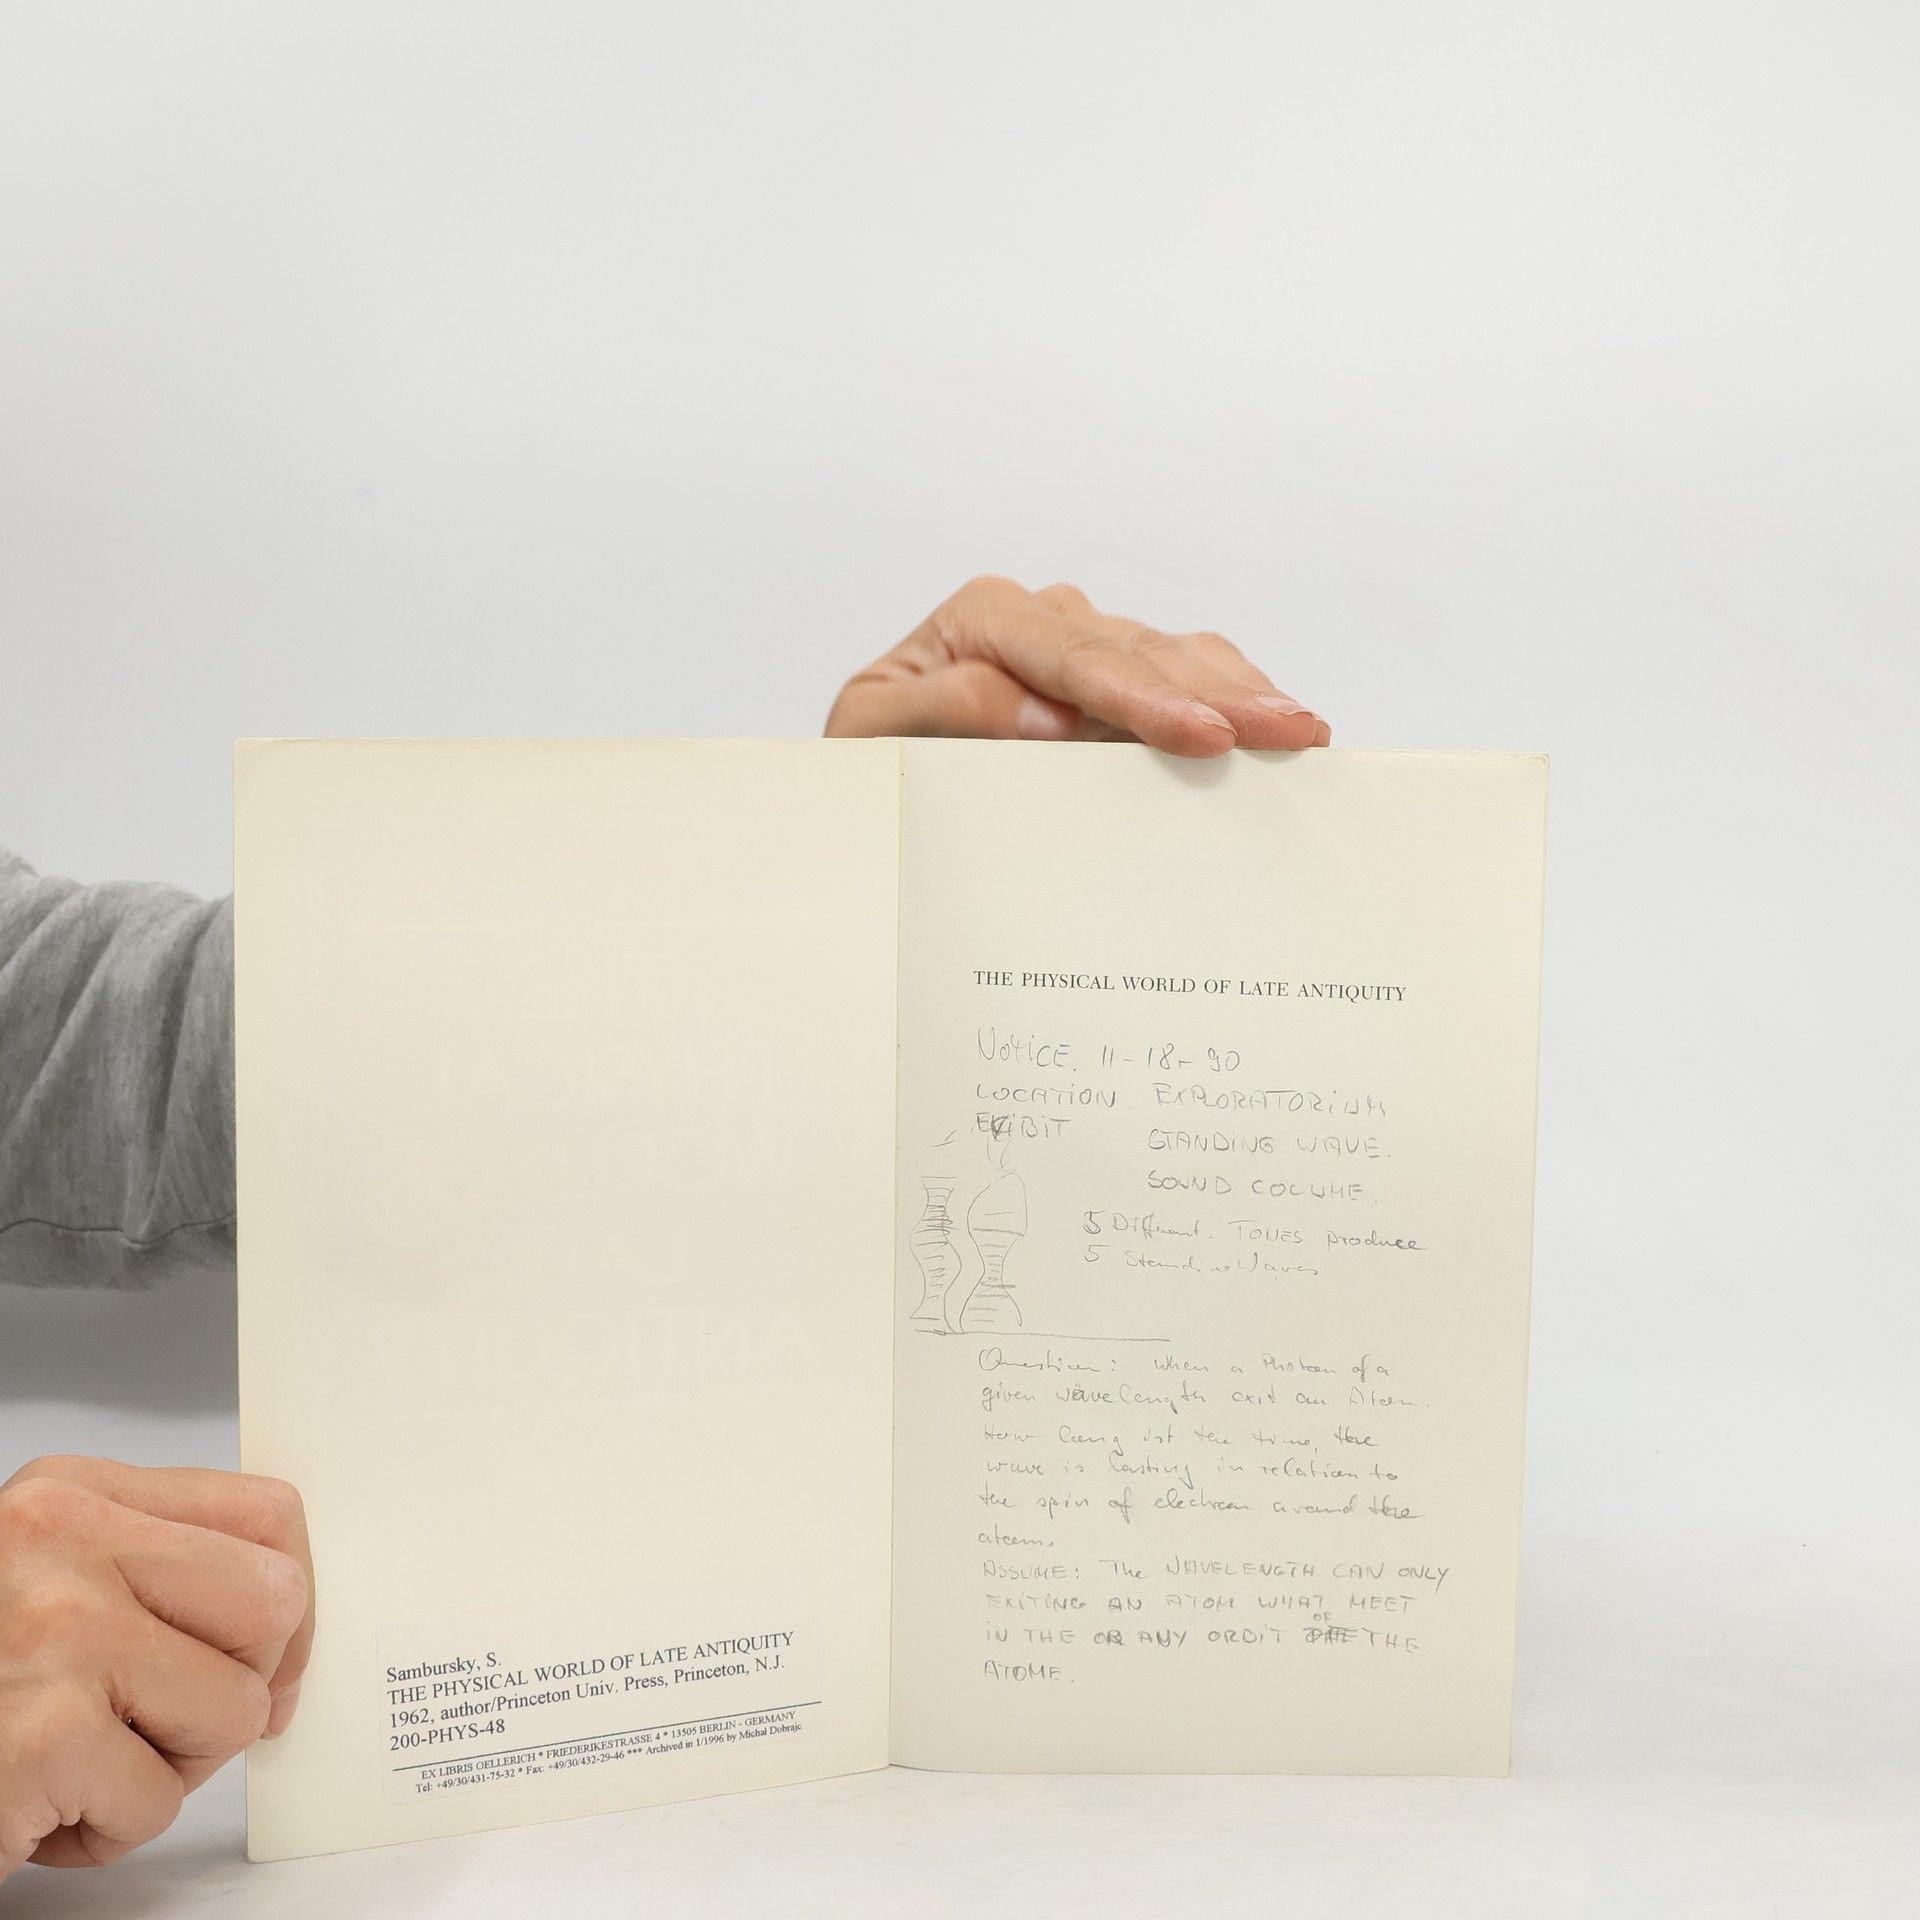 Sambursky, S.
THE PHYSICAL WORLD OF LATE ANTIQUITY
1962, author/Princeton Univ. Press, Princeton, N.J.
200-PHYS-48
EX LIBRIS OELLERICH * FRIEDERIKESTRASSE 4 * 13505 BERLIN - GERMANY
Tel: +49/30/431-75-32 * Fax: +49/30/432-29-46 *** Archived in 1/1996 by Michal Dobrajc
THE PHYSICAL WORLD OF LATE ANTIQUITY
NOTICE. 11-18-90
LOCATION EXPLORATORIUM
EXIBIT
STANDING WAVE.
SOUND COLUME.
5 Different. TONES produce
5 Standing Waves
Question: When a Photon of a
given wavelength exit an Atom.
How long ist the time, the
wave is lasting in relation to
the spin of electron around the
atom.
ASSUME: The WAVELENGTH CAN ONLY
EXITING AN ATOM WHAT MEET
IN THE OR ANY ORBIT OF THE
ATOME.